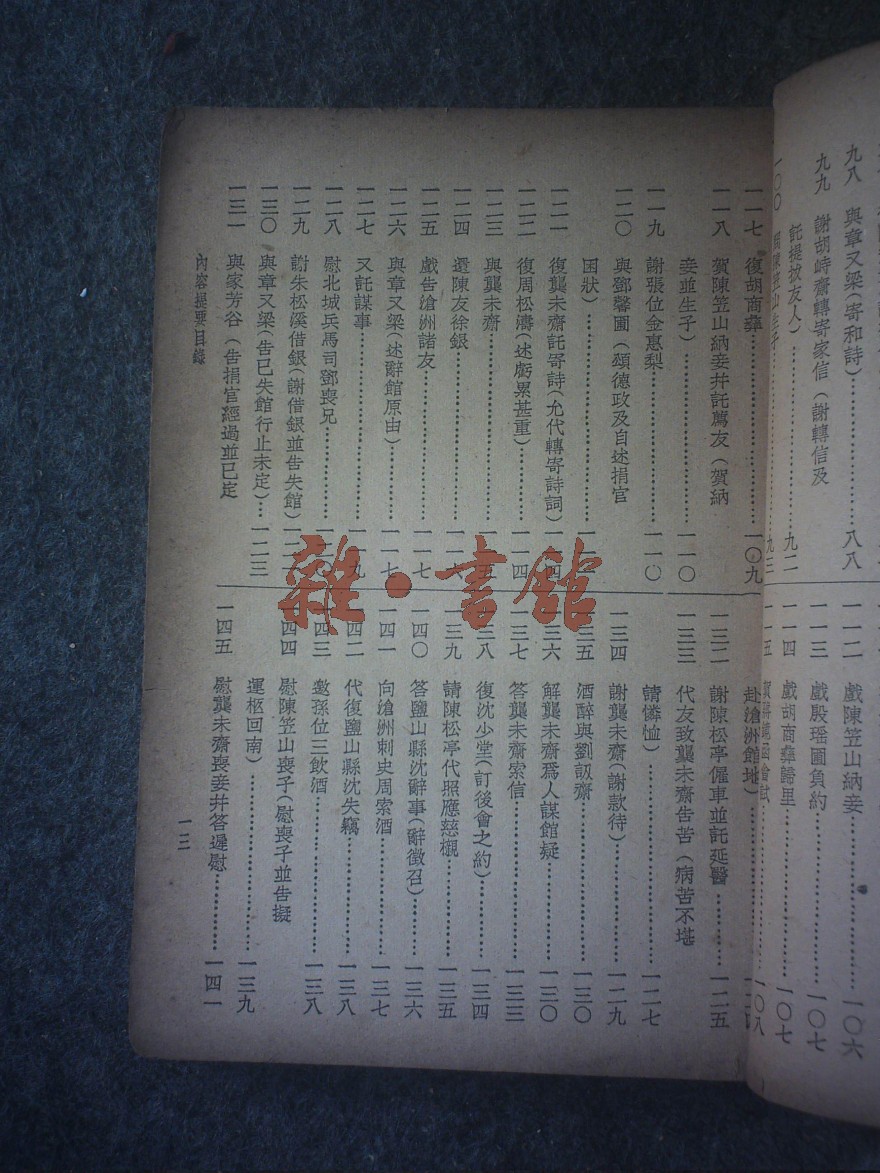 九八 與章又梁(寄和詩)……八八
九九 謝胡峙齋轉寄家信(謝轉信及
託提拔友人)……九二
一〇〇
九三
一一二 戲陳笠山納妾……一〇六
一一三 戲殷瑶圃負約……一〇七
一一四 戲胡商彝歸里……一〇七
一一五
一〇八
一一七 復胡商彝……一〇九
一一八 賀陳笠山納妾幷託薦友(賀納
妾並生子)……一一〇
一一九 謝張位金惠梨……一一〇
一二〇 與鄧馨圃(頌德政及自述捐官
困狀)……
一二一 復龔未齋託寄詩(允代轉寄詩詞)
一二二 復周松濤(述虧累甚重)……一一四
一二三 與龔未齋……
一二四 還陳友徐銀……
一二五 戲告滄洲諸友……一一七
一二六 與章又梁(述辭館原由)……一一七
一二七 又託謀事……
一二八 慰北城兵馬司鄧喪兄……
一二九 謝朱松溪借銀(謝借銀並告失館)
一三〇 與章又梁(告已失館行止未定)…一二三
一三一 與家芳谷(告捐官經過並已定
赴滄洲館地)……
一三二 謝陳松亭僱車並託延醫……一二五
一三三 代友致龔未齋告苦(病苦不堪
請憐恤)……一二七
一三四 謝龔未齋(謝款待)……一二九
酒醉與劉訒齋……一三〇
一三六 解龔未齋爲人謀館疑……一三〇
一三七 答龔未齋索信……一三三
復沈少堂(訂後會之約)……一三四
請陳松亭代照應慈櫬……一三五
一四〇 答鹽山縣沈辭事(辭徵召)……一三六
一四一 向滄洲刺史周索酒……一三七
一四二 代復鹽山縣沈失竊……一三八
一四三 邀孫位三飲酒……一三八
一四四 慰陳笠山喪子(慰喪子並告擬
運柩回南)……一三九
一四五 慰龔未齋喪妾幷答遲慰……一四一
內容提要目錄
一三
雜·書館